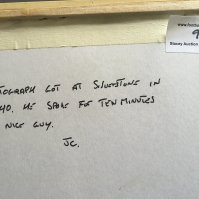 www.footba
9
Stacey Auction
TOGRAPH GOT AT SILVERSTONE IN
40. HE SPOKE FOR TEN MINUTES
NICE GUY.
JC.